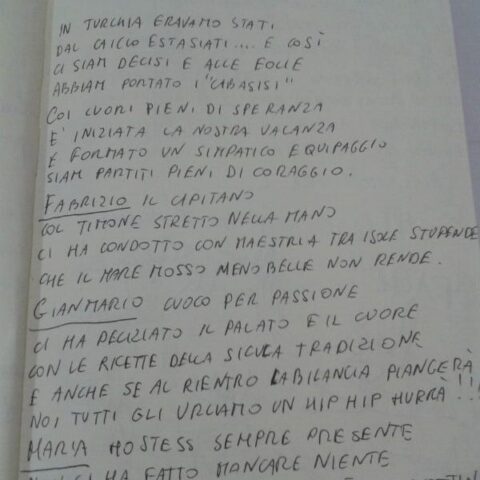 IN TURCHIA ERAVAMO STATI
DAL CAICCO ESTASIATI.... E COSÌ
CI SIAM DECISI E ALLE EOLIE
ABBIAM PORTATO I "CABASISI"
COI CUORI PIENI DI SPERANZA
E' INIZIATA LA NOSTRA VACANZA
E FORMATO UN SIMPATICO EQUIPAGGIO
SIAM PARTITI PIENI DI CORAGGIO.
FABRIZIO IL CAPITANO
COL TIMONE STRETTO NELLA MANO
CI HA CONDOTTO CON MAESTRIA TRA ISOLE STUPENDE
CHE IL MARE MOSSO MENO BELLE NON RENDE.
GIANMARIO CUOCO PER PASSIONE
CI HA DELIZIATO IL PALATO E IL CUORE
CON LE RICETTE DELLA SICULA TRADIZIONE
E ANCHE SE AL RIENTRO LA BILANCIA PIANGERÀ
NOI TUTTI GLI URLIAMO UN HIP HIP HURRÀ!!
MARIA HOSTESS SEMPRE PRESENTE
NON CI HA FATTO MANCARE NIENTE